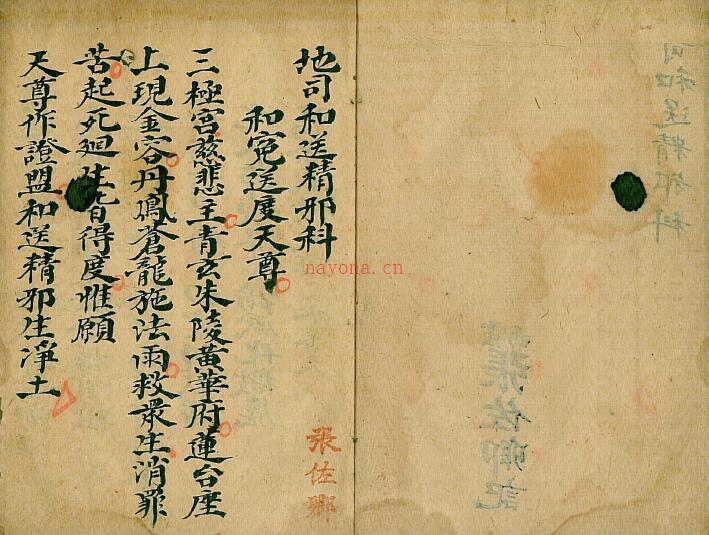 地司和送精邪科
和冤送度天尊
三極宮慈悲主青玄朱陵黃華府蓮台座
上現金容丹鳳蒼龍施法雨救眾生消罪
苦起死廻生皆得度惟願
天尊作證盟和送精邪生淨土
張佐卿
nayona.cn
司和送精邪科
張佐卿記